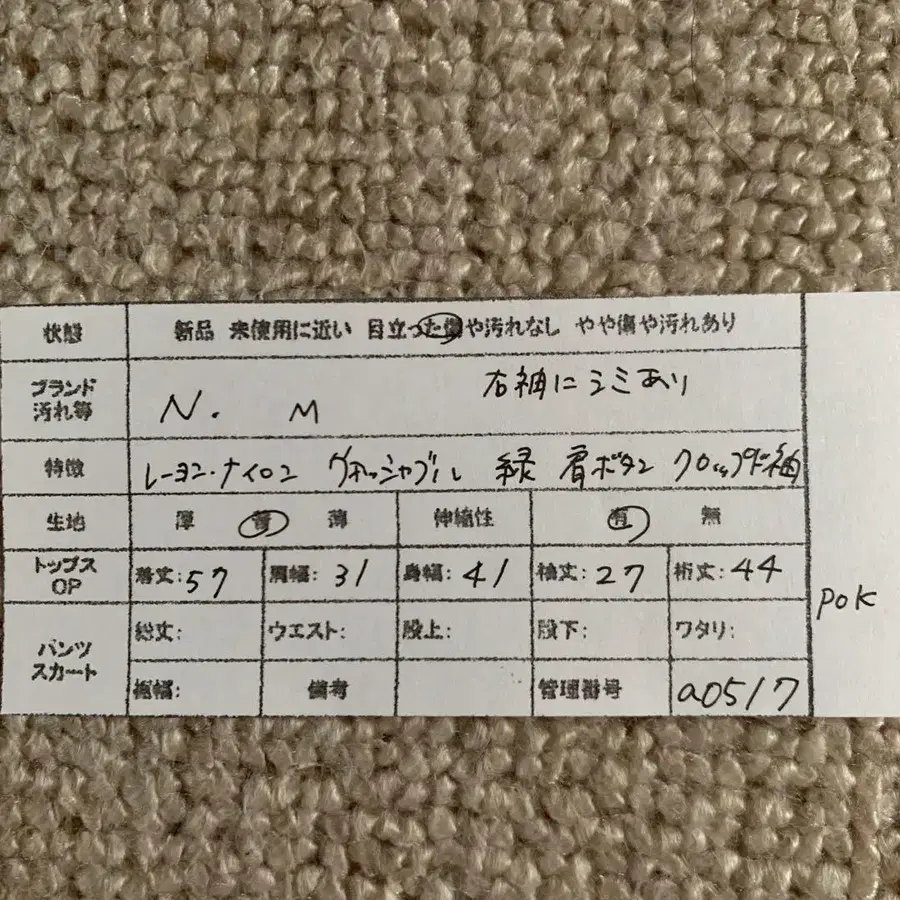 状態 新品 未使用に近い 目立った傷や汚れなし やや傷や汚れあり
ブランド 汚れ等 N. M 右袖にシミあり
特徴 レーヨン・ナイロン ウォッシャブル 緑 肩ボタン クロップド袖
生地 厚 普 薄 伸縮性 有 無
トップス OP 着丈:57 肩幅:31 身幅:41 袖丈:27 裄丈:44
パンツ スカート 総丈: ウエスト: 股上: 股下: ワタリ:
裾幅: 備考 管理番号 a0517
POK